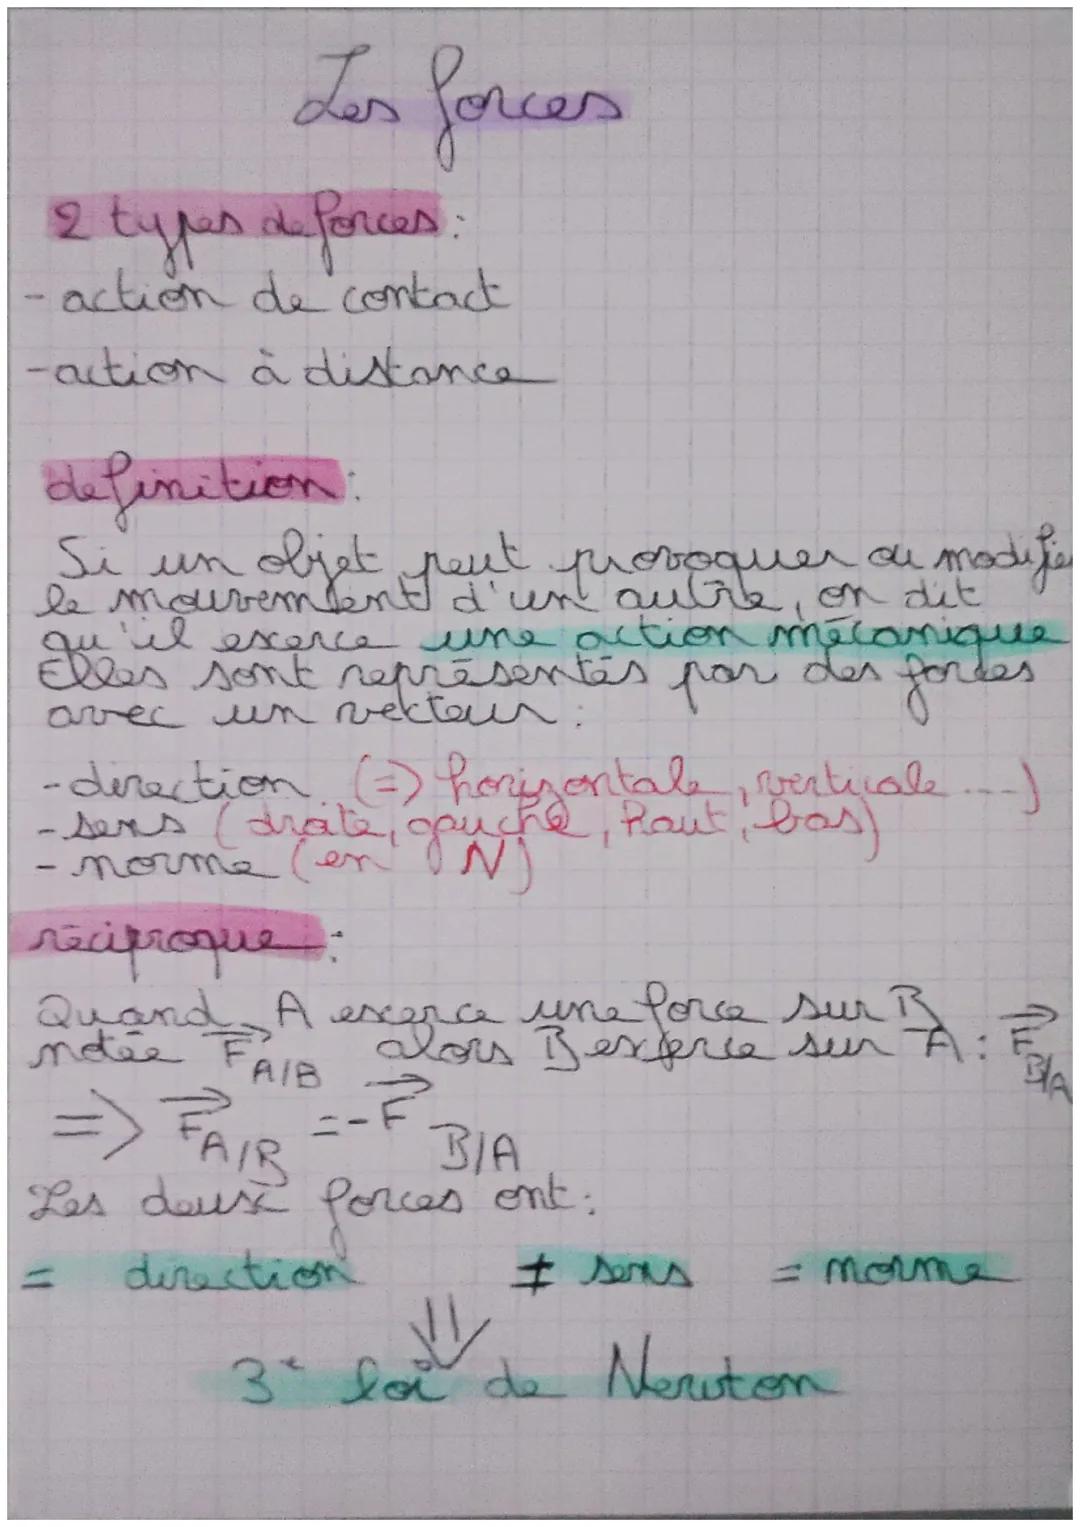 Les forces
2 types de forces :
- action de contact
- action à distance
definition :
Si un objet peut provoquer ou modifier
le mouvement d'un autre, on dit
qu'il exerce une action mécanique
Elles sont représentés par des forces
avec un vecteur :
- direction (=> horizontale, verticale ...)
- sens (droite, gauche, haut, bas)
- norme (en N)
réciproque :
Quand A exerce une force sur B
notée F→ A/B alors B exerce sur A : F→ B/A
=> F→ A/B = -F→ B/A
Les deux forces ont :
= direction ≠ sens = norme
⇓
3e loi de Newton